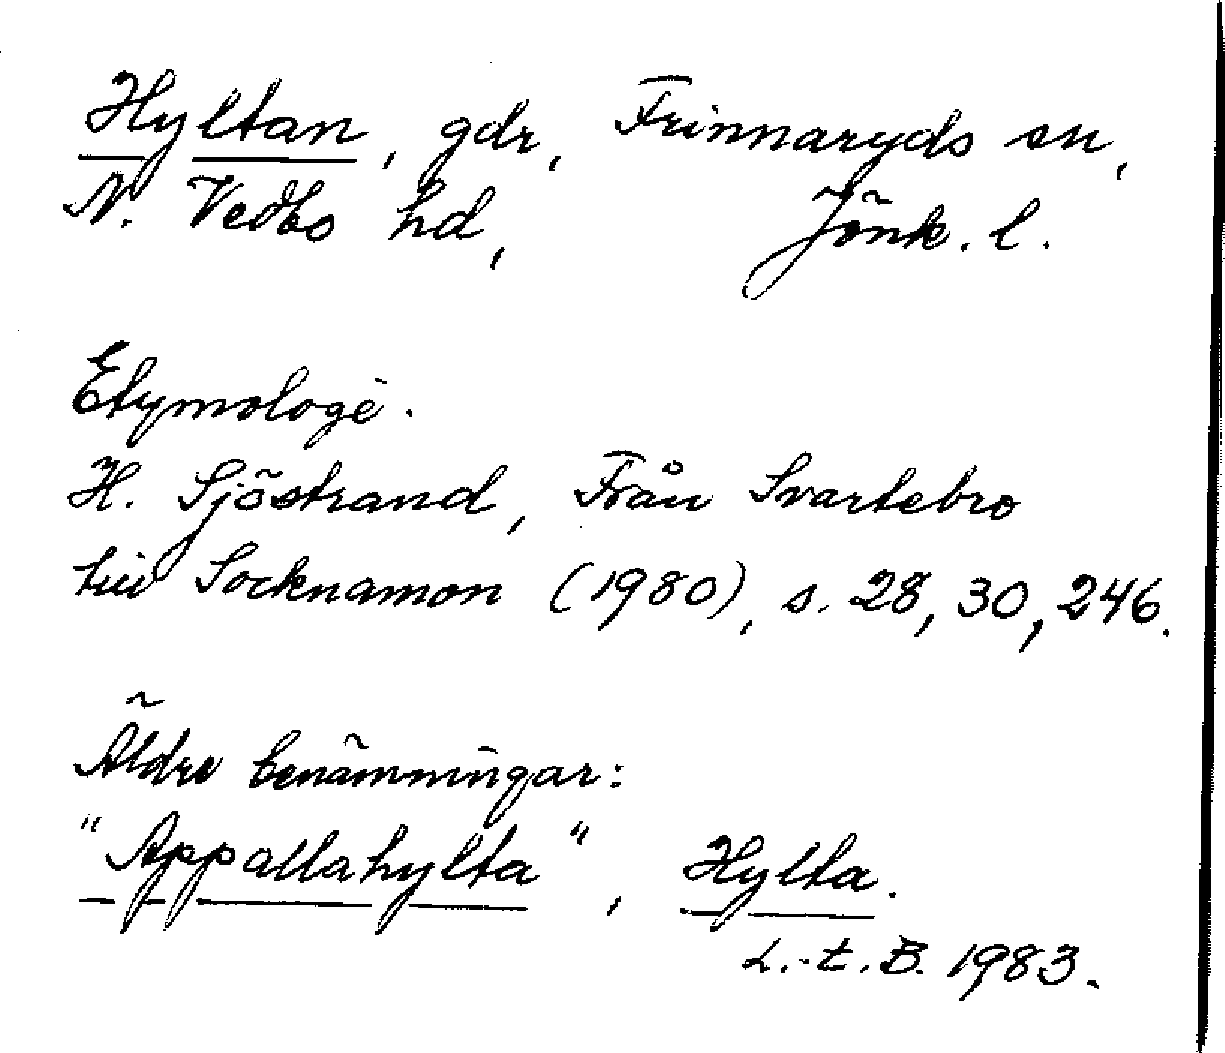 Hyltan, gdr, Frinnaryds sn,
N. Vedbo hd, Jönk. l.
Etymologi.
H. Sjöstrand, Från Svartebro
till Socknamon (1980), s. 28, 30, 246.
Äldre benämningar:
"Appallahylta", Hylta.
L.-E. B. 1983.